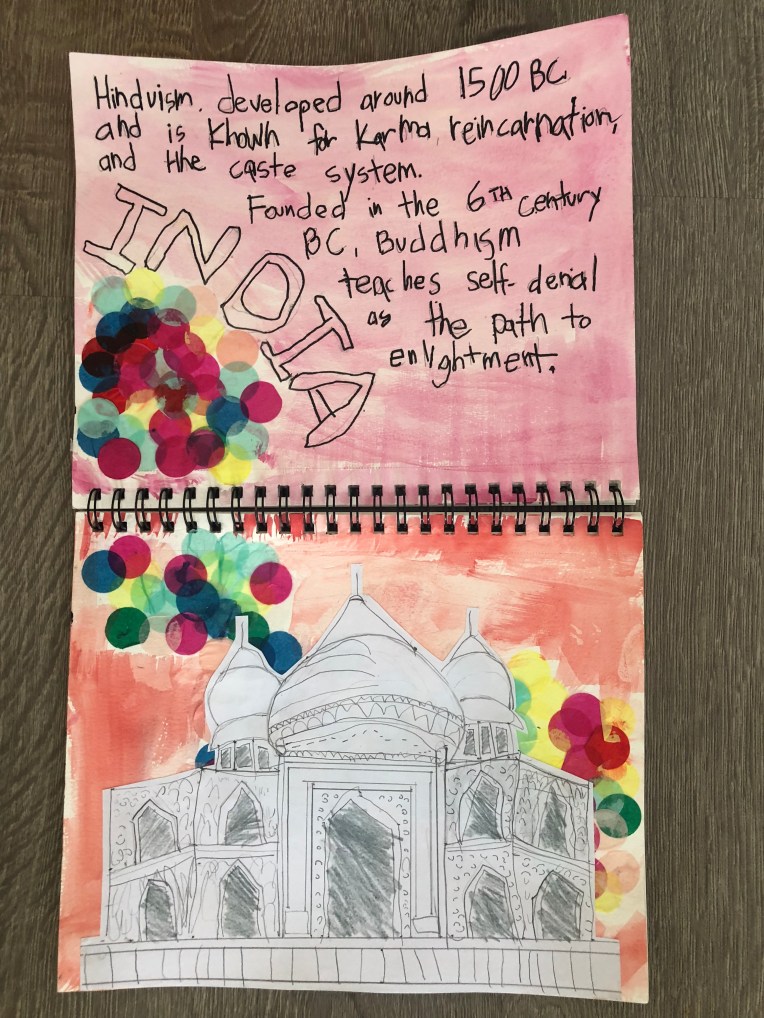 Hinduism. developed around 1500 BC
and is known for Karma, reincarnation,
and the caste system.
INDIA
Founded in the 6TH century
BC, Buddhism
teaches self-denial
as the path to
enlightment.